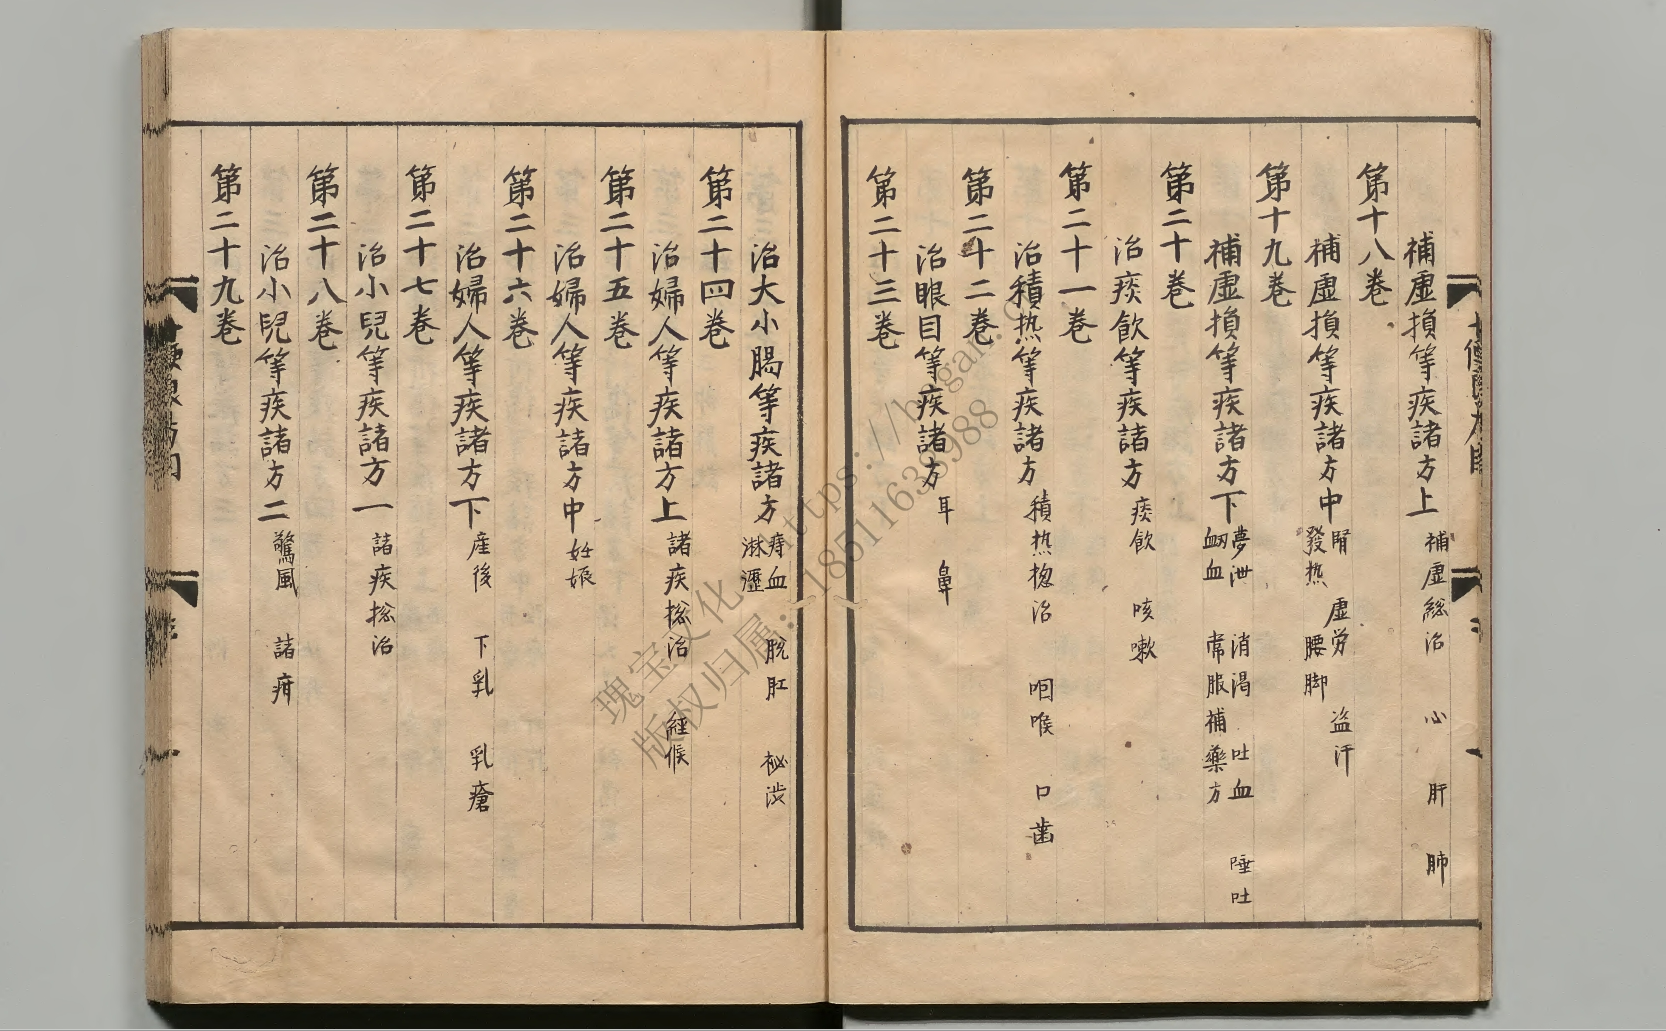 補虛損等疾諸方上 補虛総治 心 肝 肺
第十八卷
補虛損等疾諸方中 腎 虛労 盗汗 發熱 腰脚
第十九卷
補虛損等疾諸方下 夢泄 消渴 吐血 唾吐 衂血 常服補藥方
第二十卷
治痰飲等疾諸方 痰飲 咳嗽
第二十一卷
治積热等疾諸方 積热揔治 咽喉 口歯
第二十二卷
治眼目等疾諸方 耳 鼻
第二十三卷
治大小腸等疾諸方 痔血 脫肛 秘渋 淋瀝
第二十四卷
治婦人等疾諸方上 諸疾揔治 經候
第二十五卷
治婦人等疾諸方中 妊娠
第二十六卷
治婦人等疾諸方下 産後 下乳 乳瘡
第二十七卷
治小兒等疾諸方一 諸疾揔治
第二十八卷
治小兒等疾諸方二 驚風 諸疳
第二十九卷
https://bggar.c
瑰宝文化
版权归属:18511633988